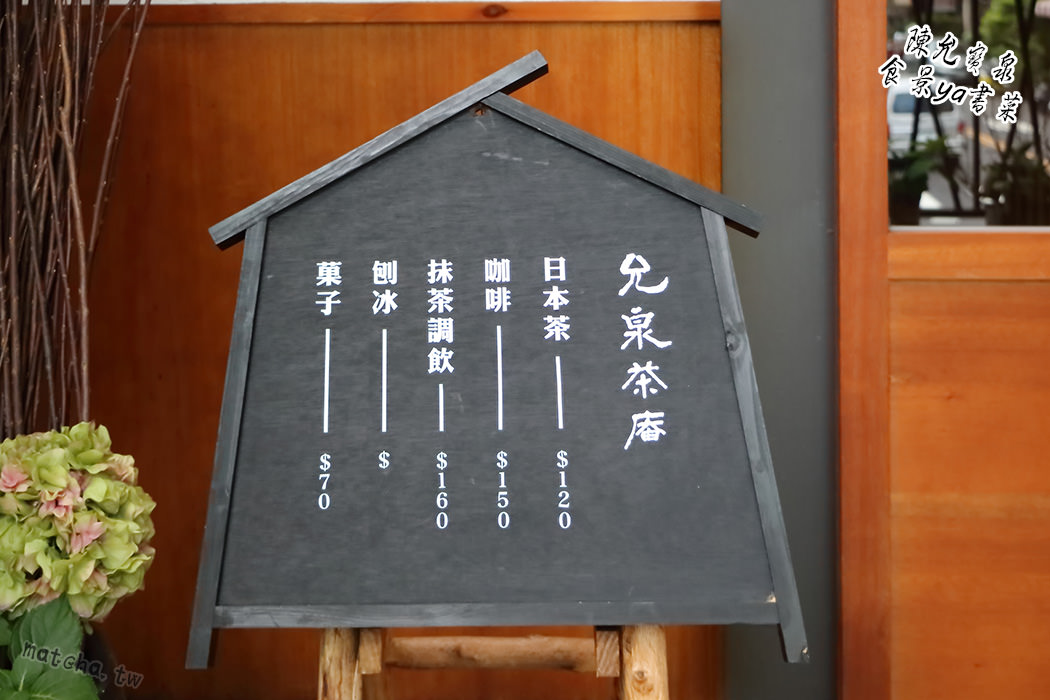 允泉茶庵
日本茶 $120
咖啡 $150
抹茶調飲 $160
刨冰 $
菓子 $70
陳允寶泉
食景ya書菜
matcha.tw